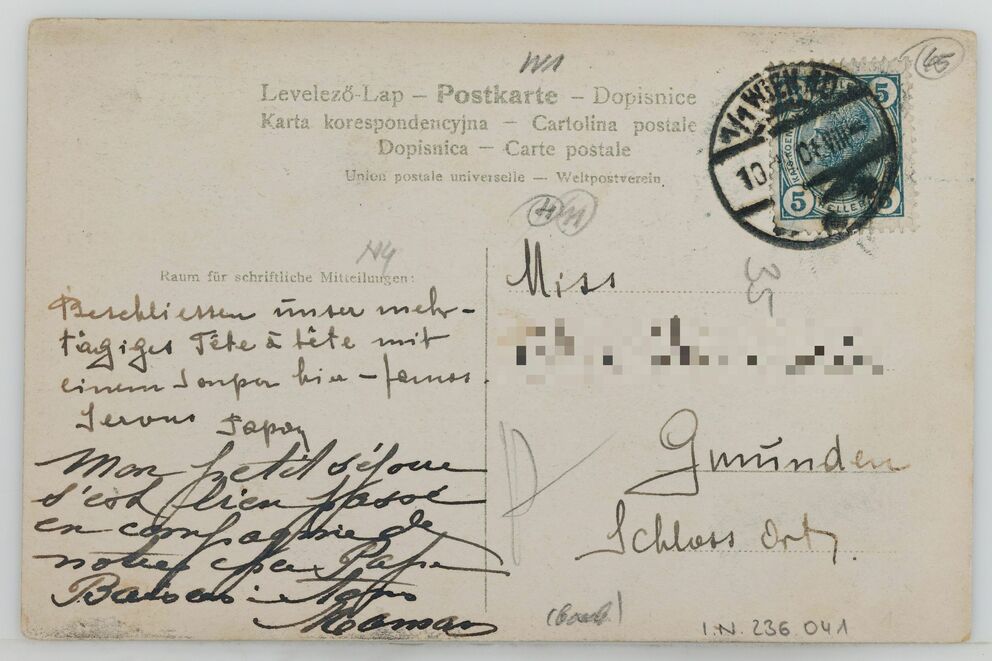 W1
45
Levelező-Lap – Postkarte – Dopisnice
Karta korespondencyjna – Cartolina postale
Dopisnica – Carte postale
Union postale universelle – Weltpostverein
1/1 WIEN
10
5 5
5
Raum für schriftliche Mitteilungen:
Beschliessen unser mehr-
tägiges Tête à tête mit
einem Souper hier – famos.
Servus
Mon petit séjour
s'est bien passé
en compagnie de
notre cher Papa
Baisers
Maman
Miss
35
Gmunden
Schloss Ort.
I.N. 236 041